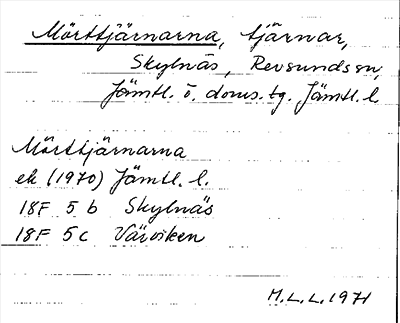 Mörttjärnarna, tjärnar,
Skylnäs, Revsunds sn,
Jämtl. ö. doms.tg. Jämtl. l.
Mörttjärnarna
ek (1970) Jämtl. l.
18F 5 b Skylnäs
18F 5 c Värviken
M.L.L. 1971